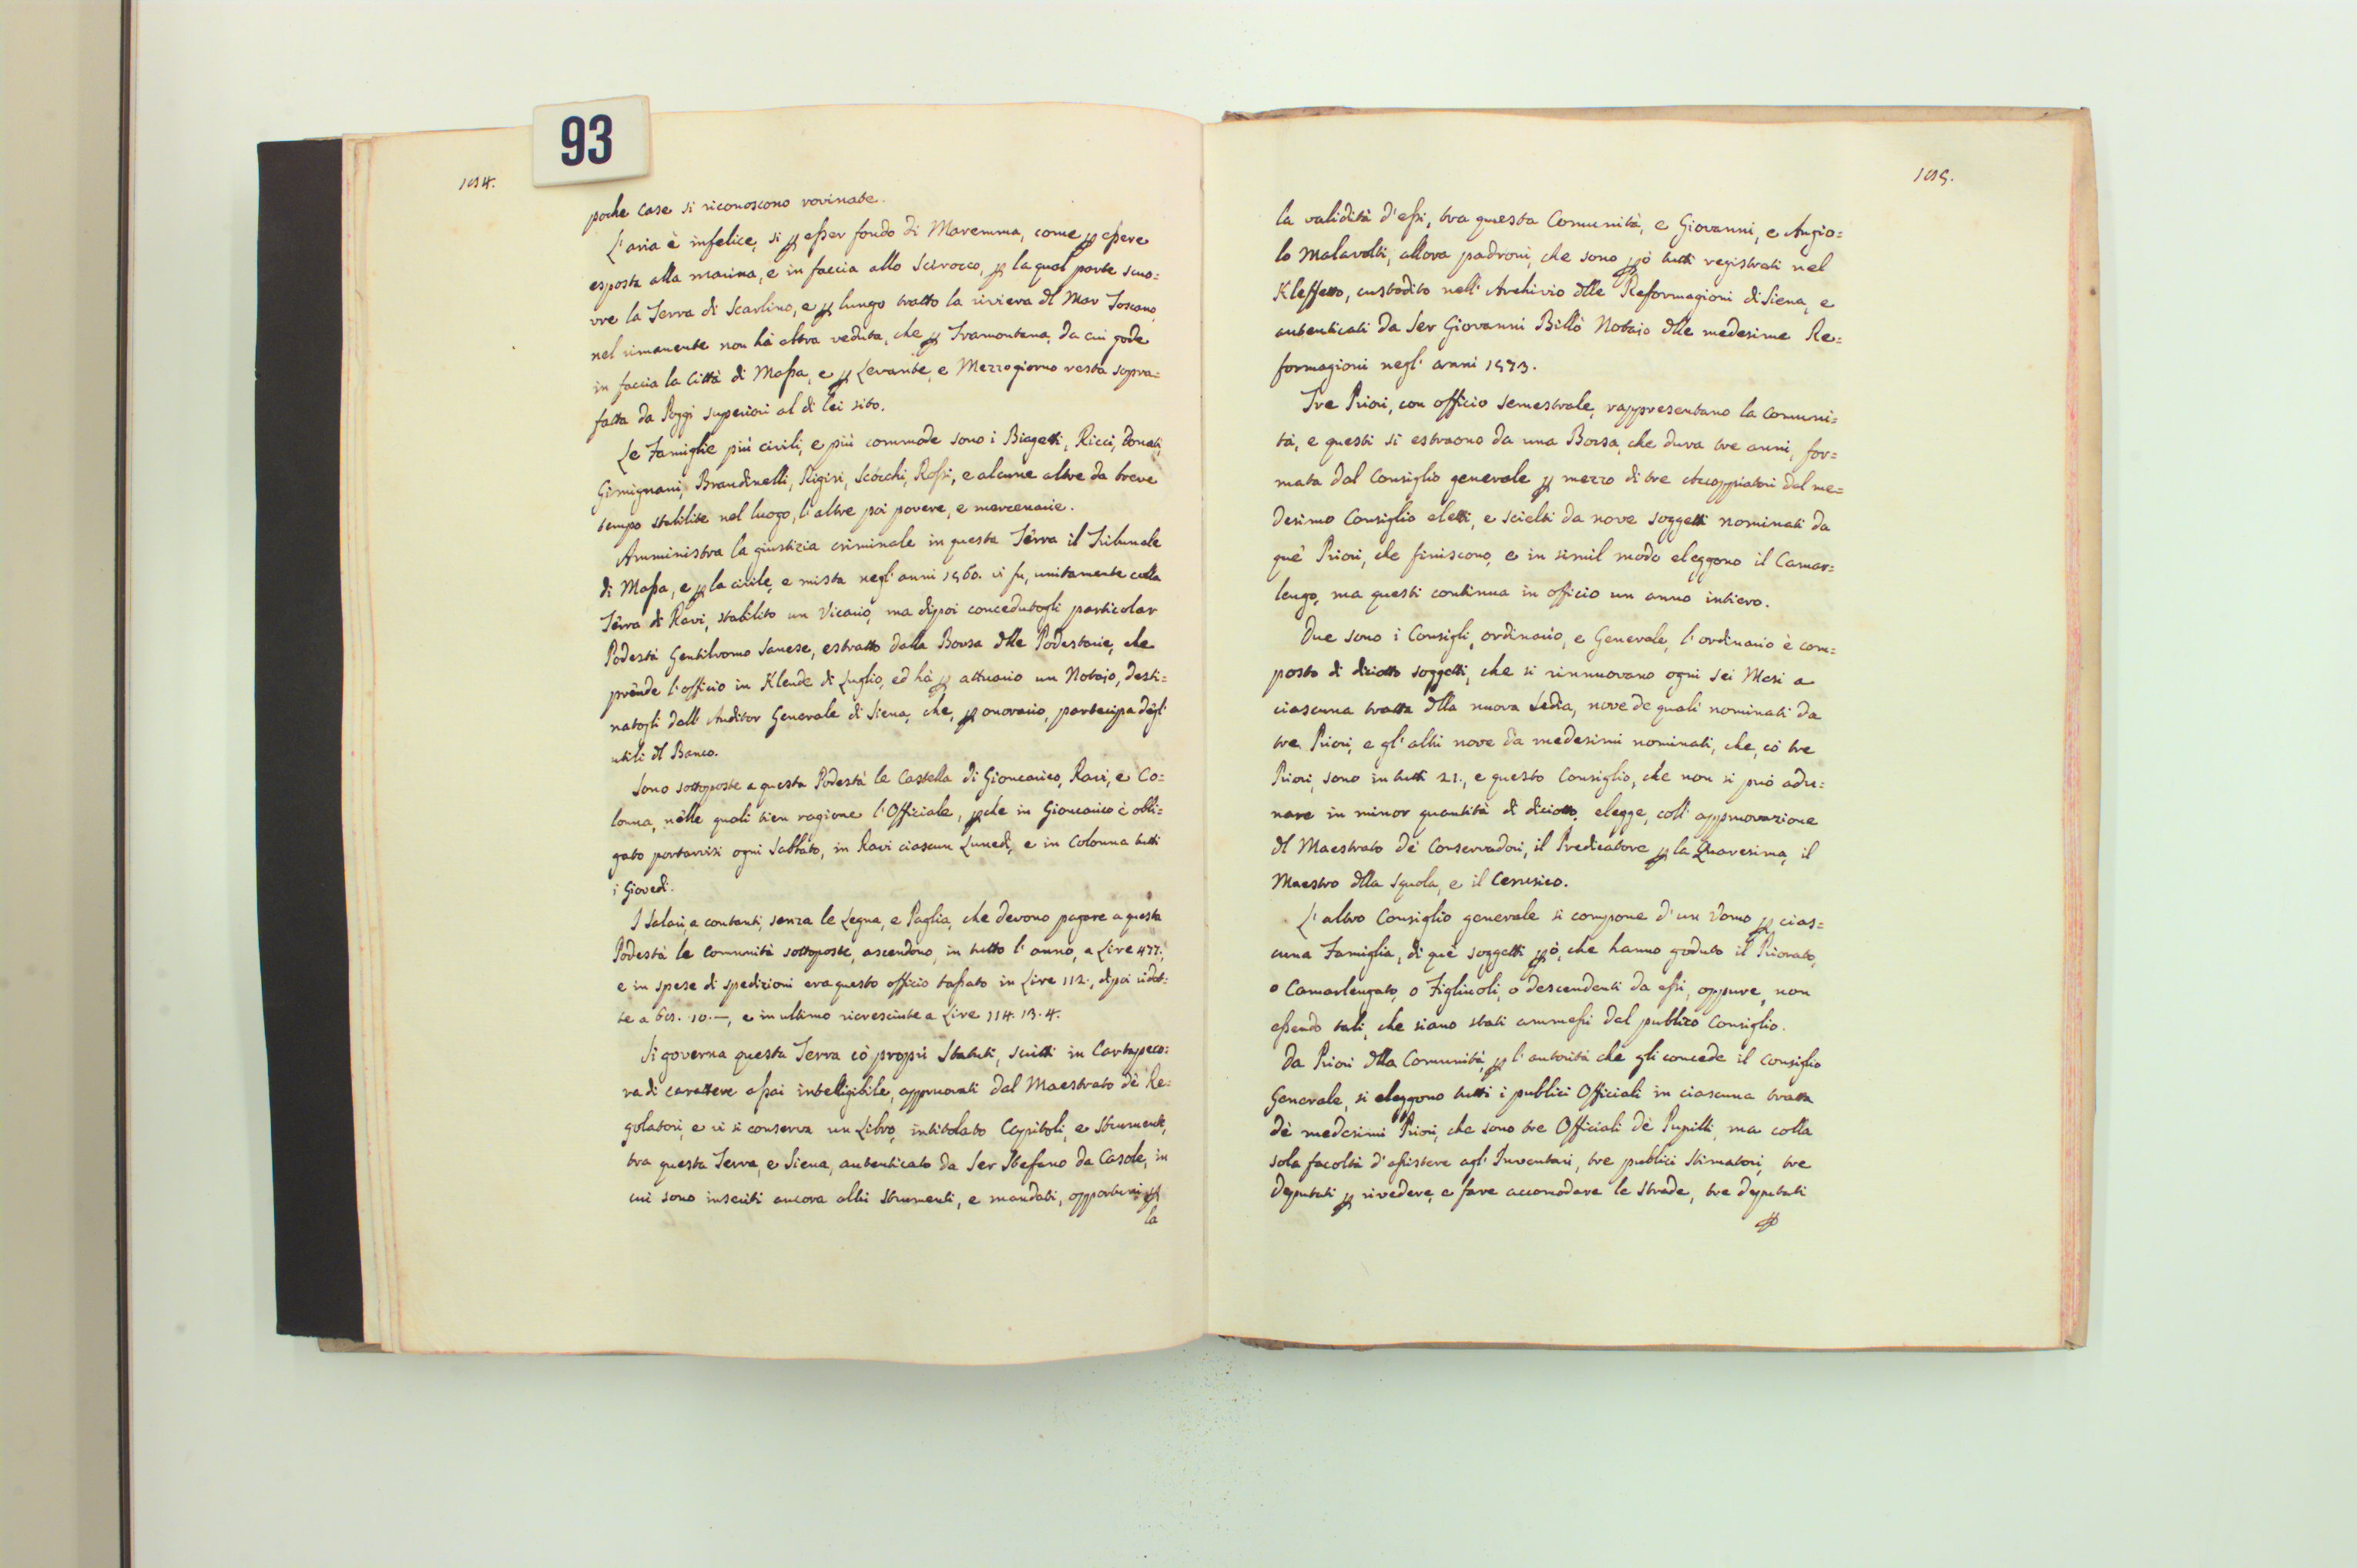 93
1014.
poche case si riconoscono rovinate.
L'aria è infelice, si ꝑ esser fondo di Maremma, come ꝑ essere
esposta alla marina, e in faccia allo Scirocco, ꝑ la qual parte scuo=
pre la Terra di Scarlino, e ꝑ lungo tratto la riviera dl Mar Toscano,
nel rimanente non hà altra veduta, che ꝑ Tramontana, da cui gode
in faccia la Città di Massa, e ꝑ Levante, e Mezzogiorno resta sopra=
fatta da Poggi superiori al di lei sito.
Le Famiglie più civili, e più commode sono i Biagetti, Ricci, Donati,
Gimignani, Brandinelli, Rigiri, Scocchi, Rossi, e alcune altre da breve
tempo stabilite nel luogo, l'altre poi povere, e mercenarie.
Amministra la giustizia criminale in questa Terra il Tribunale
di Massa, e ꝑ la civile, e mista negl'anni 1560. vi fu, unitamente colla
Terra di Ravi, stabilito un Vicario, ma dipoi concedutogli particolar
Podestà Gentilvomo Sanese, estratto dalla Borsa dlle Podestarie, che
prende l'officio in Klende di Luglio, ed hà ꝑ attuario un Notajo, desti=
natogli dall'Auditor Generale di Siena, che, ꝑ onorario, partecipa degl'
utili dl Banco.
Sono sottoposte a questa Podestà le Castella di Gioncarico, Ravi, e Co=
lonna, nelle quali tien ragione l'Officiale, ꝑche in Gioncarico è obbli=
gato portarvisi ogni Sabbato, in Ravi ciascun Lunedì, e in Colonna tutti
i Giovedì.
I Salarj a contanti, senza le Legna, e Paglia, che devono pagare a questa
Podestà le Comunità sottoposte, ascendono, in tutto l'anno, a Lire 477.,
e in spese di spedizioni era questo officio tassato in Lire 112., dipoi ridot:
te a 60. 10.—, e in ultimo ricresciute a Lire 114. 13. 4.
Si governa questa Terra cò proprii Statuti, scritti in Cartapeco:
ra di carattere assai intelligibile, appruovati dal Maestrato dè Re=
golatori, e vi si conserva un Libro, intitolato Capitoli, e Strumenti,
tra questa Terra, e Siena, autenticato da Ser Stefano da Casole, in
cui sono inseriti ancora altri strumenti, e mandati, opportuni ꝑ
la
1015.
la validità d'essi, tra questa Comunità, e Giovanni, e Angio=
lo Malavolti, allora padroni, che sono ꝑò tutti registrati nel
Kleffetto, custodito nell'Archivio dlle Reformagioni di Siena, e
autenticati da Ser Giovanni Billò Notajo dlle medesime Re=
formagioni negl'anni 1573.
Tre Priori, con officio semestrale, rappresentano la Comuni=
tà, e questi si estraono da una Borsa, che dura tre anni, for=
mata dal Consiglio generale ꝑ mezzo di tre Accoppiatori dal me=
desimo Consiglio eletti, e scielti da nove soggetti nominati da
què Priori, che finiscono, e in simil modo eleggono il Camar=
lengo, ma questi continua in officio un anno intiero.
Due sono i Consigli, ordinario, e Generale, l'ordinario è com=
posto di diciotto soggetti, che si rinnuovano ogni sei Mesi a
ciascuna tratta dlla nuova Sedia, nove de quali nominati da
tre Priori, e gl'altri nove da medesimi nominati, che, cò tre
Priori, sono in tutti 21., e questo Consiglio, che non si può adu=
nare in minor quantità di diciotto, elegge, coll'appruovazione
dl Maestrato dè Conservadori, il Predicatore ꝑ la Quaresima, il
Maestro dlla Squola, e il Cerusico.
L'altro Consiglio generale si compone d'un Vomo ꝑ cias=
cuna Famiglia, di què soggetti ꝑò, che hanno goduto il Priorato,
o Camarlengato, o Figliuoli, o descendenti da essi, oppure, non
essendo tali, che siano stati ammessi dal publico Consiglio.
Da Priori dlla Comunità, ꝑ l'autorità che gli concede il Consiglio
Generale, si eleggono tutti i publici Officiali in ciascuna tratta
dè medesimi Priori, che sono tre Officiali dè Pupilli, ma colla
sola facoltà d'assistere agl'Inventari, tre publici Stimatori, tre
Deputati ꝑ rivedere, e fare accomodare le strade, tre Deputati
ꝑ